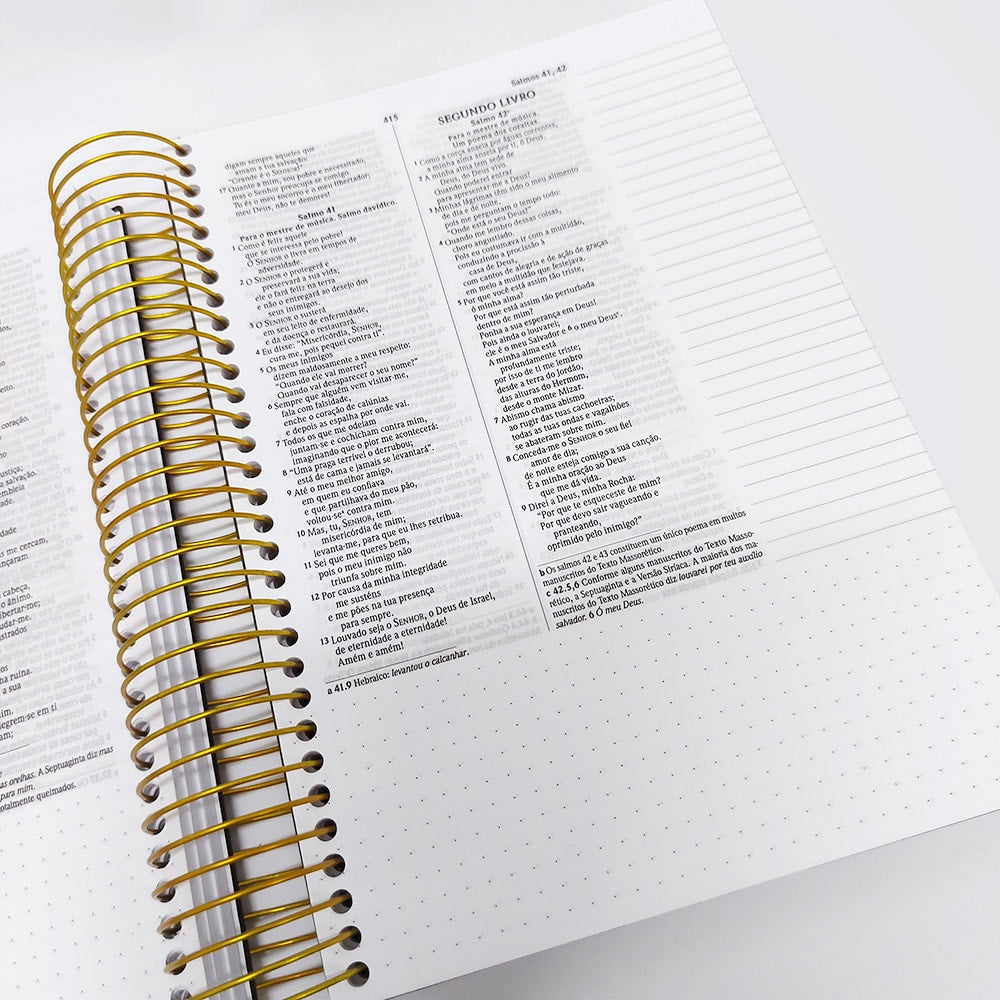 coração.
justiça;
a salvação.
mbleia
dade
me cercam,
nçaram
cabeça,
o ânimo.
libertar-me;
udar-me.
ustrados
ha ruína.
a sua
im.
legrem-se em ti
am;
as orelhas. A Septuaginta diz mas
para mim.
totalmente queimados.
415
Salmos 41, 42
digam sempre aqueles que
amam a tua salvação:
"Grande é o SENHOR!"
17 Quanto a mim, sou pobre e necessitado,
mas o Senhor preocupa-se comigo.
Tu és o meu socorro e o meu libertador;
meu Deus, não te demores!
Salmo 41
Para o mestre de música. Salmo davídico.
1 Como é feliz aquele
que se interessa pelo pobre!
O SENHOR o livra em tempos de
adversidade.
2 O SENHOR o protegerá e
preservará a sua vida;
ele o fará feliz na terra
e não o entregará ao desejo dos
seus inimigos.
3 O SENHOR o susterá
em seu leito de enfermidade,
e da doença o restaurará.
4 Eu disse: "Misericórdia, SENHOR,
cura-me, pois pequei contra ti".
5 Os meus inimigos
dizem maldosamente a meu respeito:
"Quando ele vai morrer?
Quando vai desaparecer o seu nome?"
6 Sempre que alguém vem visitar-me,
fala com falsidade,
enche o coração de calúnias
e depois as espalha por onde vai.
7 Todos os que me odeiam
juntam-se e cochicham contra mim,
imaginando que o pior me acontecerá:
8 "Uma praga terrível o derrubou;
está de cama e jamais se levantará".
9 Até o meu melhor amigo,
em quem eu confiava
e que partilhava do meu pão,
voltou-seᵃ contra mim.
10 Mas, tu, SENHOR, tem
misericórdia de mim;
levanta-me, para que eu lhes retribua.
11 Sei que me queres bem,
pois o meu inimigo não
triunfa sobre mim.
12 Por causa da minha integridade
me susténs
e me pões na tua presença
para sempre.
13 Louvado seja o SENHOR, o Deus de Israel,
de eternidade a eternidade!
Amém e amém!
a 41.9 Hebraico: levantou o calcanhar.
SEGUNDO LIVRO
Salmo 42ᵇ
Para o mestre de música.
Um poema dos coraítas.
1 Como a corça anseia por águas correntes,
a minha alma anseia por ti, ó Deus.
2 A minha alma tem sede de
Deus, do Deus vivo.
Quando poderei entrar
para apresentar-me a Deus?
3 Minhas lágrimas têm sido o meu alimento
de dia e de noite,
pois me perguntam o tempo todo:
"Onde está o seu Deus?"
4 Quando me lembro destas coisas,
choro angustiado.
Pois eu costumava ir com a multidão,
conduzindo a procissão à
casa de Deus,
com cantos de alegria e de ação de graças
em meio à multidão que festejava.
5 Por que você está assim tão triste,
ó minha alma?
Por que está assim tão perturbada
dentro de mim?
Ponha a sua esperança em Deus!
Pois ainda o louvarei;
ele é o meu Salvador e 6 o meu Deusᶜ.
A minha alma está
profundamente triste;
por isso de ti me lembro
desde a terra do Jordão,
das alturas do Hermom,
desde o monte Mizar.
7 Abismo chama abismo
ao rugir das tuas cachoeiras;
todas as tuas ondas e vagalhões
se abateram sobre mim.
8 Conceda-me o SENHOR o seu fiel
amor de dia;
de noite esteja comigo a sua canção.
É a minha oração ao Deus
que me dá vida.
9 Direi a Deus, minha Rocha:
"Por que te esqueceste de mim?
Por que devo sair vagueando e
pranteando,
oprimido pelo inimigo?"
b Os salmos 42 e 43 constituem um único poema em muitos
manuscritos do Texto Massorético.
c 42.5,6 Conforme alguns manuscritos do Texto Masso-
rético, a Septuaginta e a Versão Siríaca. A maioria dos ma-
nuscritos do Texto Massorético diz louvarei por teu auxílio
salvador. 6 Ó meu Deus.